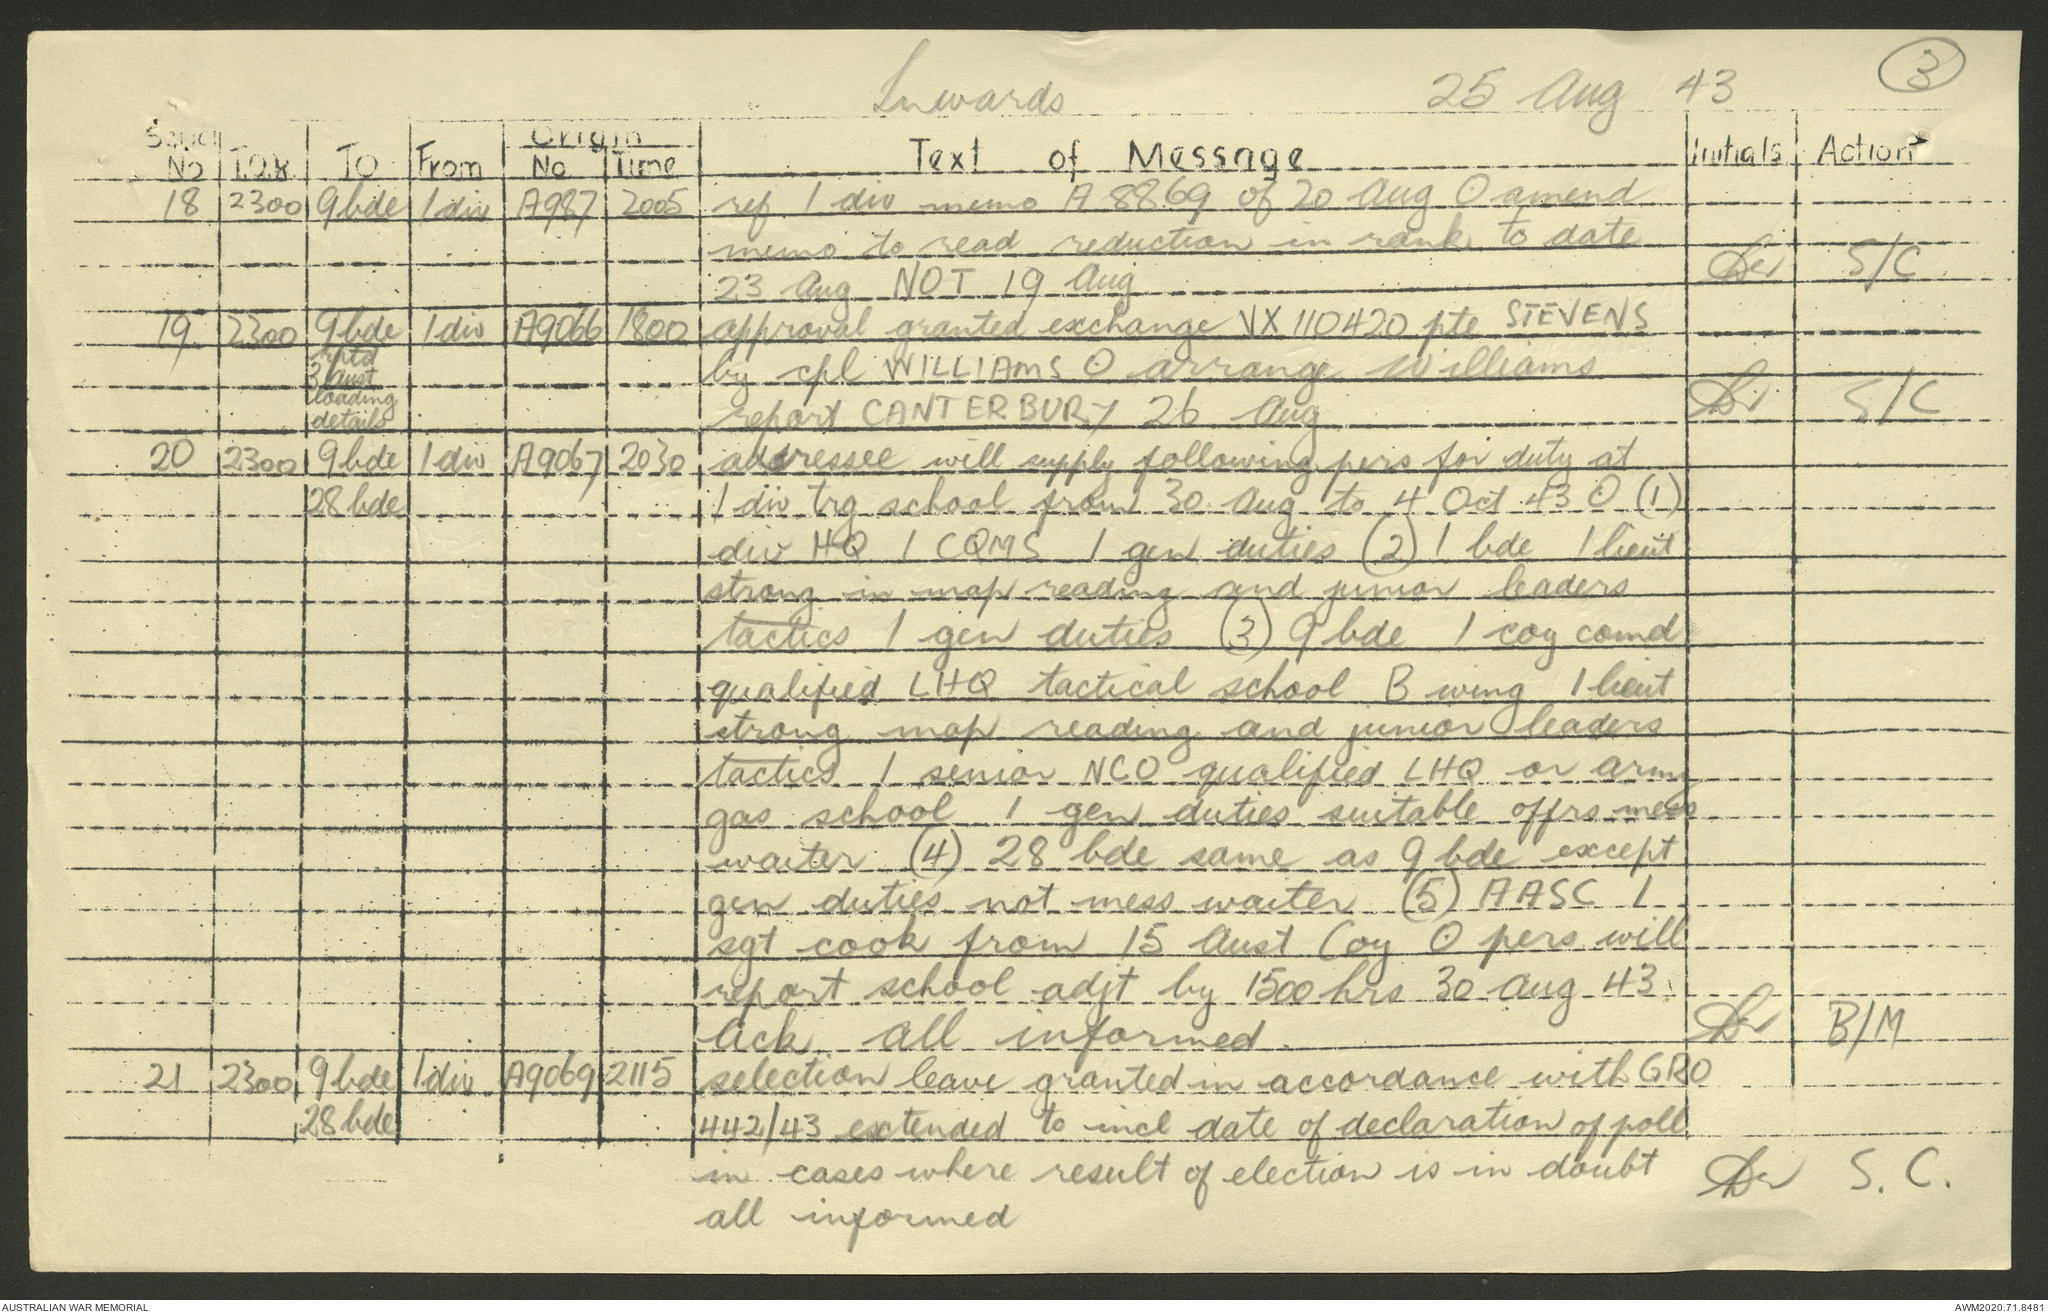 Inwards 25 Aug 43 3
Serial No T.O.R. TO From Origin No Time Text of Message Initials Action
18 2300 9 bde 1 div A987 2005 ref 1 div memo A8869 of 20 Aug O amend
memo to read reduction in rank to date
23 Aug NOT 19 Aug S/C
19 2300 9 bde 1 div A9066 1800 approval granted exchange VX110420 pte STEVENS
rptd
3 Aust by cpl WILLIAMS O arrange Williams
loading
details report CANTERBURY 26 Aug S/C
20 2300 9 bde 1 div A9067 2030 addressee will supply following pers for duty at
28 bde 1 div trg school from 30 Aug to 4 Oct 43 O (1)
div HQ 1 CQMS 1 gen duties (2) 1 bde 1 lieut
strong in map reading and junior leaders
tactics 1 gen duties (3) 9 bde 1 coy comd
qualified LHQ tactical school B wing 1 lieut
strong map reading and junior leaders
tactics 1 senior NCO qualified LHQ or army
gas school 1 gen duties suitable offrs mess
waiter (4) 28 bde same as 9 bde except
gen duties not mess waiter (5) AASC 1
sgt cook from 15 Aust Coy O pers will
report school adjt by 1500 hrs 30 Aug 43
ack all informed. B/M
21 2300 9 bde 1 div A9069 2115 selection leave granted in accordance with GRO
28 bde 442/43 extended to incl date of declaration of poll
in cases where result of election is in doubt S. C.
all informed
AUSTRALIAN WAR MEMORIAL AWM2020.71.8481